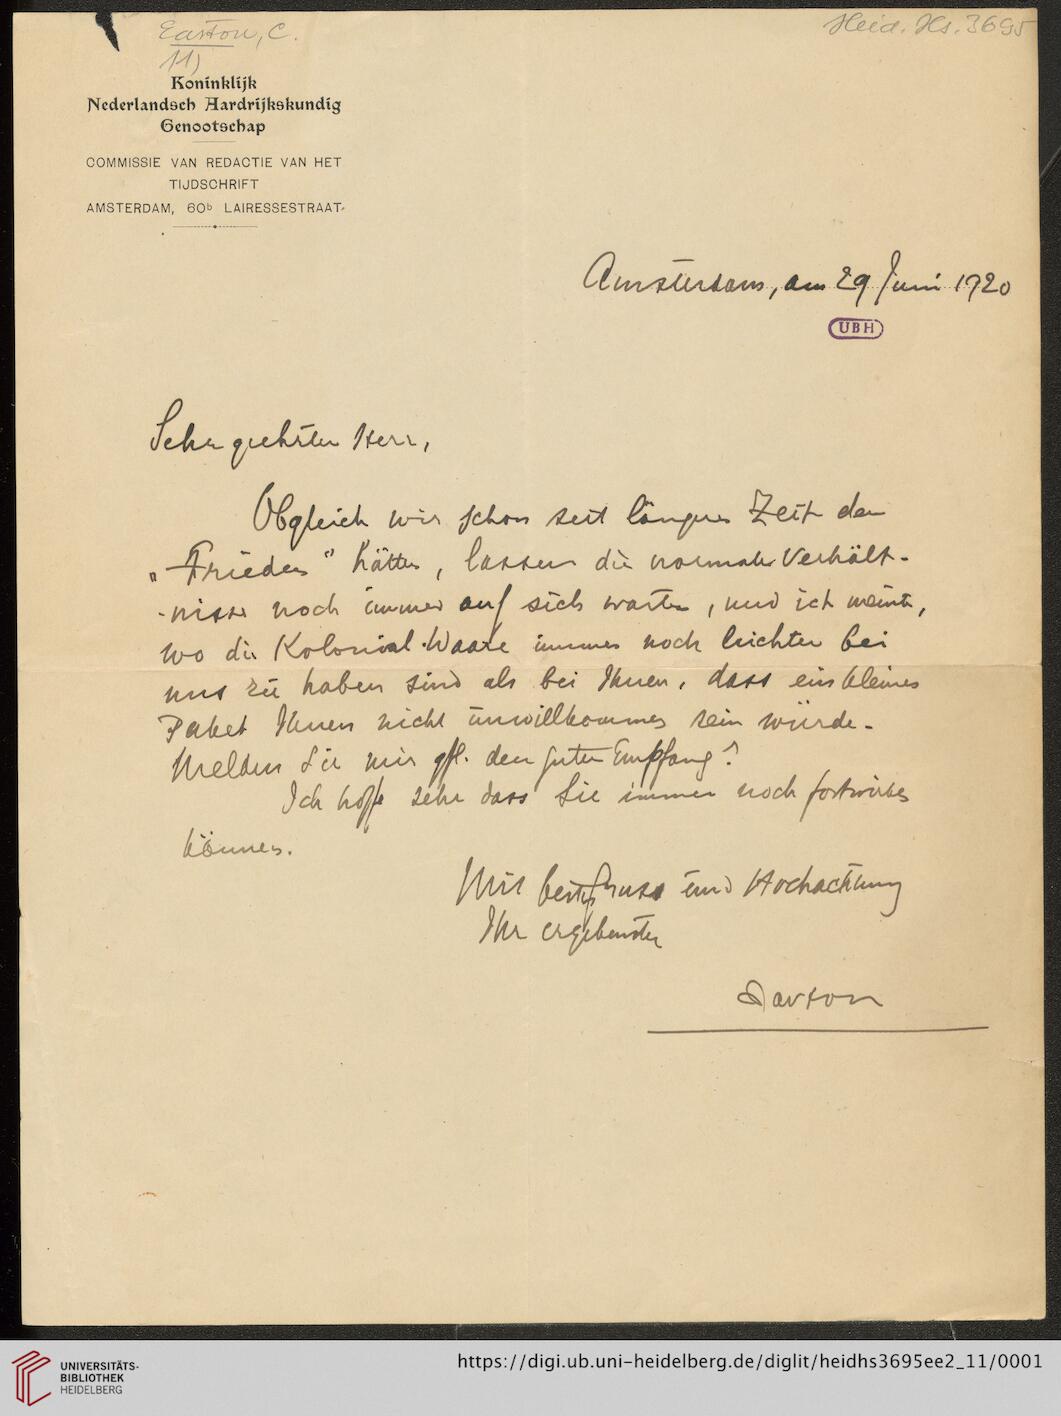 Easton, C.
11)
Heid. Hs. 3695
Koninklijk
Nederlandsch Aardrijkskundig
Genootschap
COMMISSIE VAN REDACTIE VAN HET
TIJDSCHRIFT
AMSTERDAM, 60b LAIRESSESTRAAT.
Amsterdam, am 29 Juni 1920
UBH
Sehr geehrter Herr,
Obgleich wir schon seit längerer Zeit den
„Frieden" hätten, lassen die normalen Verhält-
-nisse noch immer auf sich warten, und ich meinte,
wo die Kolonial-Waare immer noch leichter bei
uns zu haben sind als bei Ihnen, dass ein kleines
Paket Ihnen nicht unwillkommen sein würde.
Melden Sie mir gfl. den guten Empfang?
Ich hoffe sehr dass Sie immer noch fortwirken
können.
Mit best. Gruss und Hochachtung
Ihr ergebenster
Easton
UNIVERSITÄTS-
BIBLIOTHEK
HEIDELBERG
https://digi.ub.uni-heidelberg.de/diglit/heidhs3695ee2_11/0001